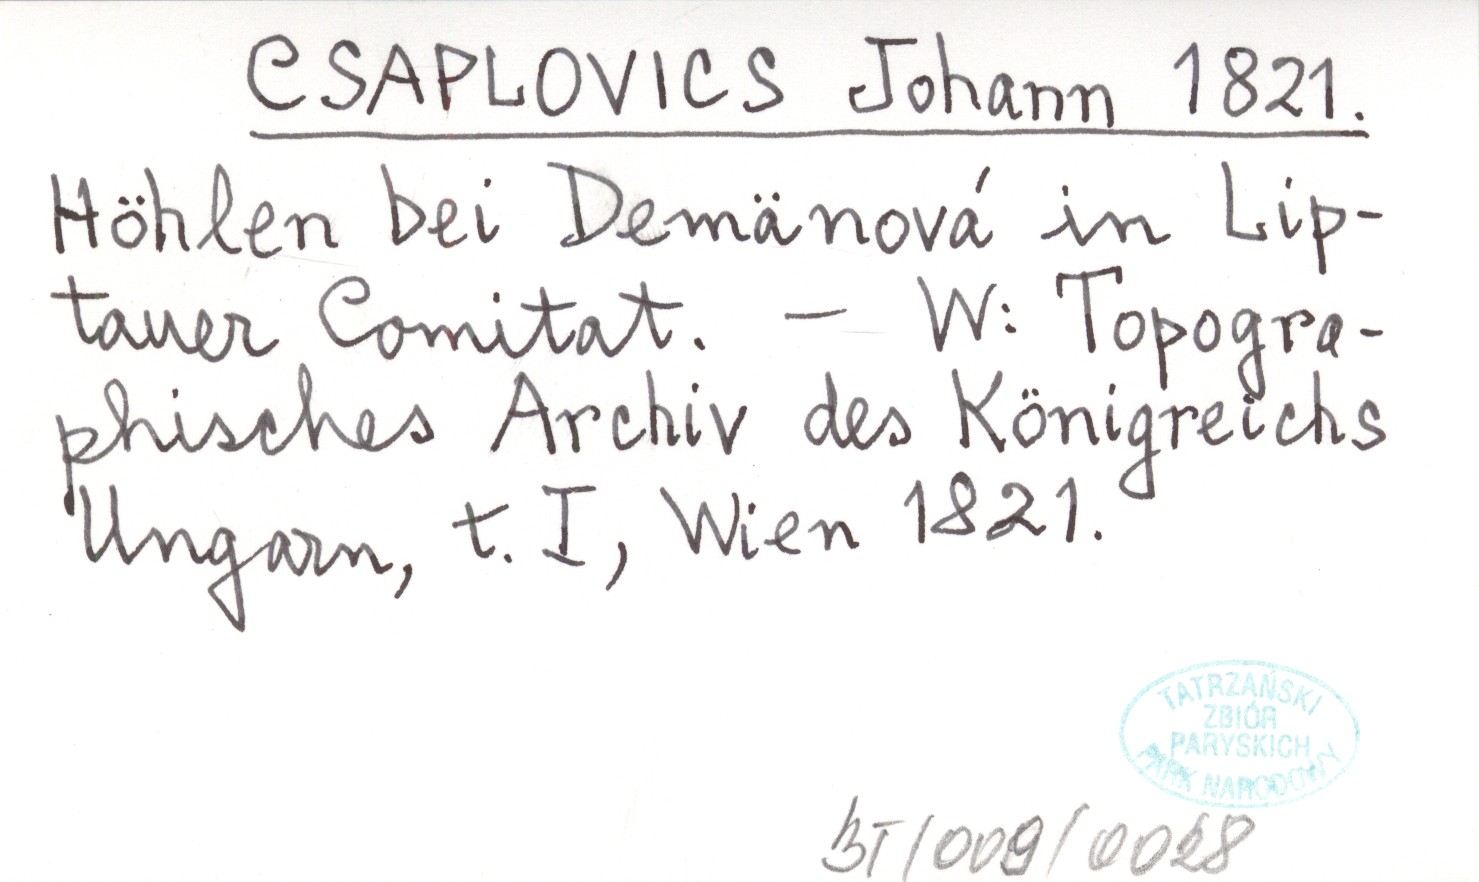 CSAPLOVICS Johann 1821.
Höhlen bei Demänová in Lip-
tauer Comitat. — W: Topogra-
phisches Archiv des Königreichs
Ungarn, t. I, Wien 1821.
TATRZAŃSKI
ZBIÓR
PARYSKICH
PARK NARODOWY
BT/009/0028